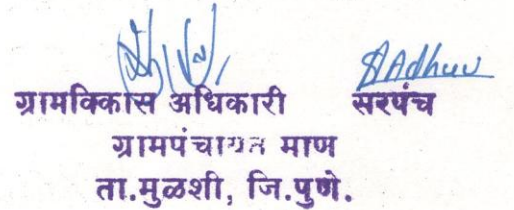 ग्रामविकास अधिकारी सरपंच
ग्रामपंचायत माण
ता.मुळशी, जि.पुणे.